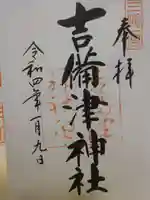 奉拝
吉備津神社
令和四年一月九日